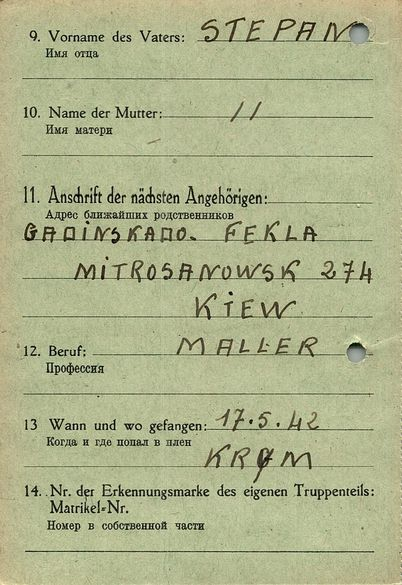 9. Vorname des Vaters: STEPAN
Имя отца
10. Name der Mutter: //
Имя матери
11. Anschrift der nächsten Angehörigen:
Адрес ближайших родственников
GADINSKADO. FEKLA
MITROSANOWSK 274
KIEW
12. Beruf: MALLER
Профессия
13 Wann und wo gefangen: 17.5.42
Когда и где попал в плен
KRØM
14. Nr. der Erkennungsmarke des eigenen Truppenteils:
Matrikel-Nr.
Номер в собственной части